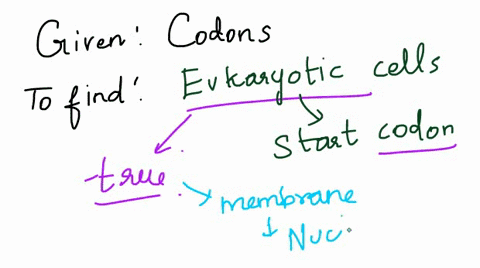 Given: Codons
To find: Eukaryotic cells
Start codon
true
membrane
Nuc